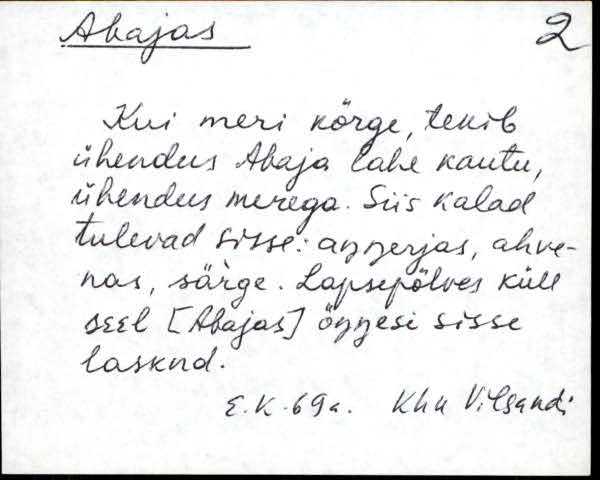 Abajas
2
Kui meri kõrge, tekib
ühendus Abaja lahe kautu,
ühendus merega. Siis kalad
tulevad sisse: aŋŋerjas, ahve-
nas, särge. Lapsepõlves küll
seel [Abajas] õŋŋesi sisse
lasknd.
E.K. 69a. Khk Vilsandi